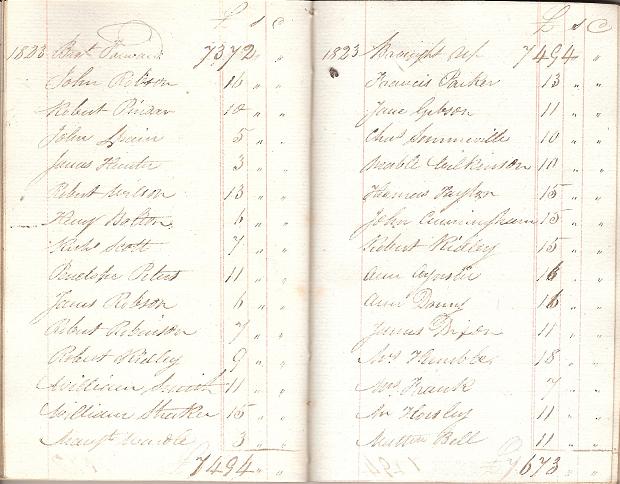 £ s d
1823 Brot Forward 7372 " "
John Robson 16 " "
Robert 10 " "
John 5 " "
James Hunter 3 " "
Robert Wilson 13 " "
Henry Bolton 6 " "
Richd Scott 7 " "
Penelope Peters 11 " "
James Robson 6 " "
Robert Robinson 7 " "
Robert Ridley 9 " "
William Smith 11 " "
William Straker 15 " "
Margt Wardle 3 " "
£7494 " "
£ s d
1823 Brought Up 7494 " "
Francis Parker 13 " "
Jane Gibson 11 " "
Chas Sommerville 10 " "
Mable Wilkinson 10 " "
Thomas Taylor 15 " "
John Cunningham 15 " "
Robert Ridley 15 " "
Ann Aynsley 16 " "
Ann 16 " "
James Dixon 11 " "
Mrs Humble 18 " "
Mrs Frank 7 " "
Mr Horsley 11 " "
Matthw Bell 11 " "
£7673 " "